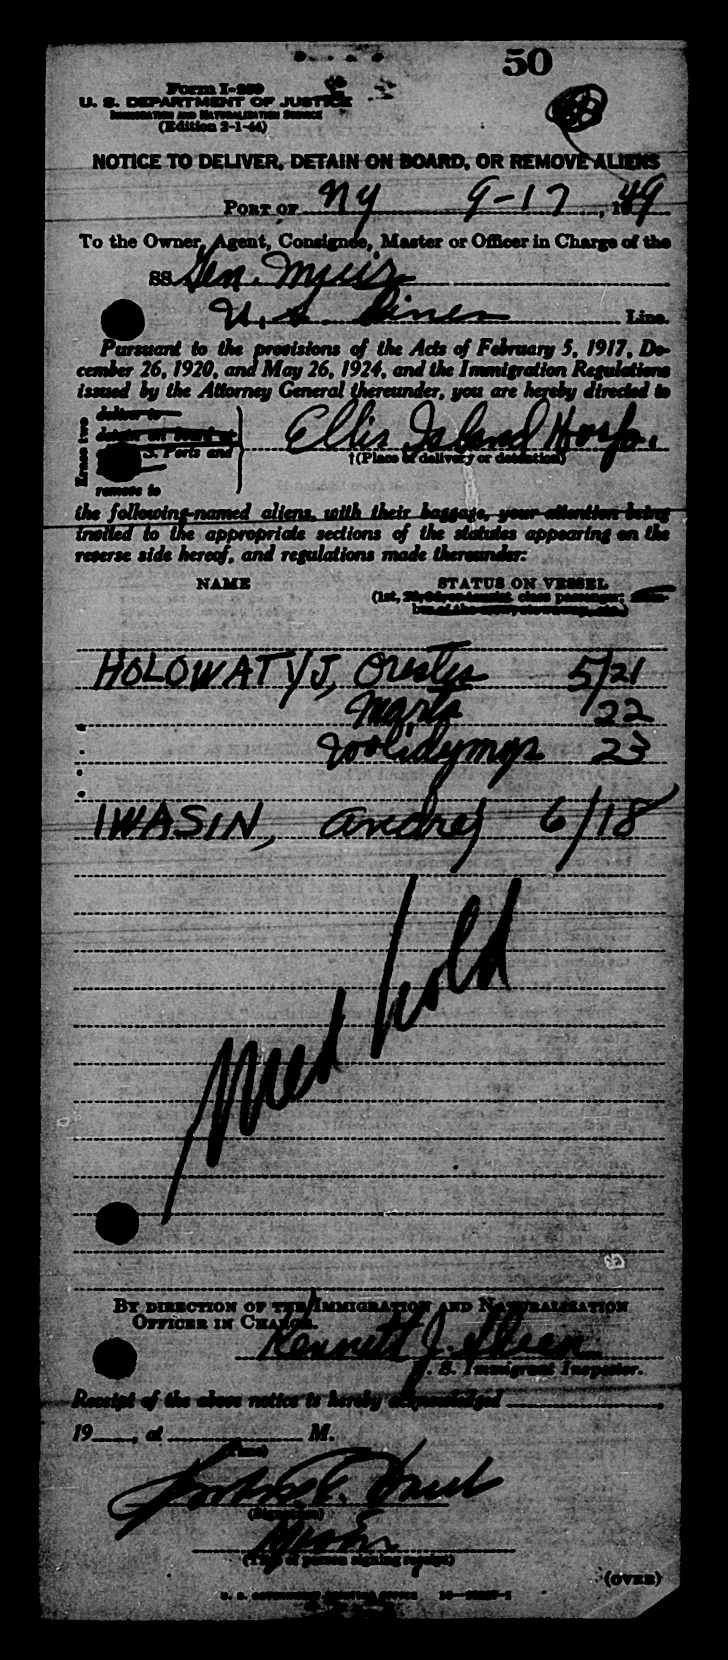 50
Form I-259
U. S. DEPARTMENT OF JUSTICE
IMMIGRATION AND NATURALIZATION SERVICE
(Edition 2-1-44)
NOTICE TO DELIVER, DETAIN ON BOARD, OR REMOVE ALIENS
PORT OF NY 9-17, 1949
To the Owner, Agent, Consignee, Master or Officer in Charge of the
SS Gen. Muir
U.S. Lines Line.
Pursuant to the provisions of the Acts of February 5, 1917, De-
cember 26, 1920, and May 26, 1924, and the Immigration Regulations
issued by the Attorney General thereunder, you are hereby directed to
Erase two
deliver to
detain on board at
S. Ports and
remove to
Ellis Island Hosp.
†(Place of delivery or detention)
the following-named aliens, with their baggage, your attention being
invited to the appropriate sections of the statutes appearing on the
reverse side hereof, and regulations made thereunder:
NAME STATUS ON VESSEL
(1st, class passenger;
HOLOWATYJ, Orestes 5/21
Marta 22
Wolidymyr 23
IWASIN, Andrej 6/18
Med Hold
BY DIRECTION OF THE IMMIGRATION AND NATURALIZATION
OFFICER IN CHARGE.
Kenneth J.
U. S. Immigrant Inspector.
Receipt of the above notice is hereby acknowledged
19 , at M.
(Time)
(Signature)
(Title of person signing receipt)
(OVER)
U. S. GOVERNMENT PRINTING OFFICE